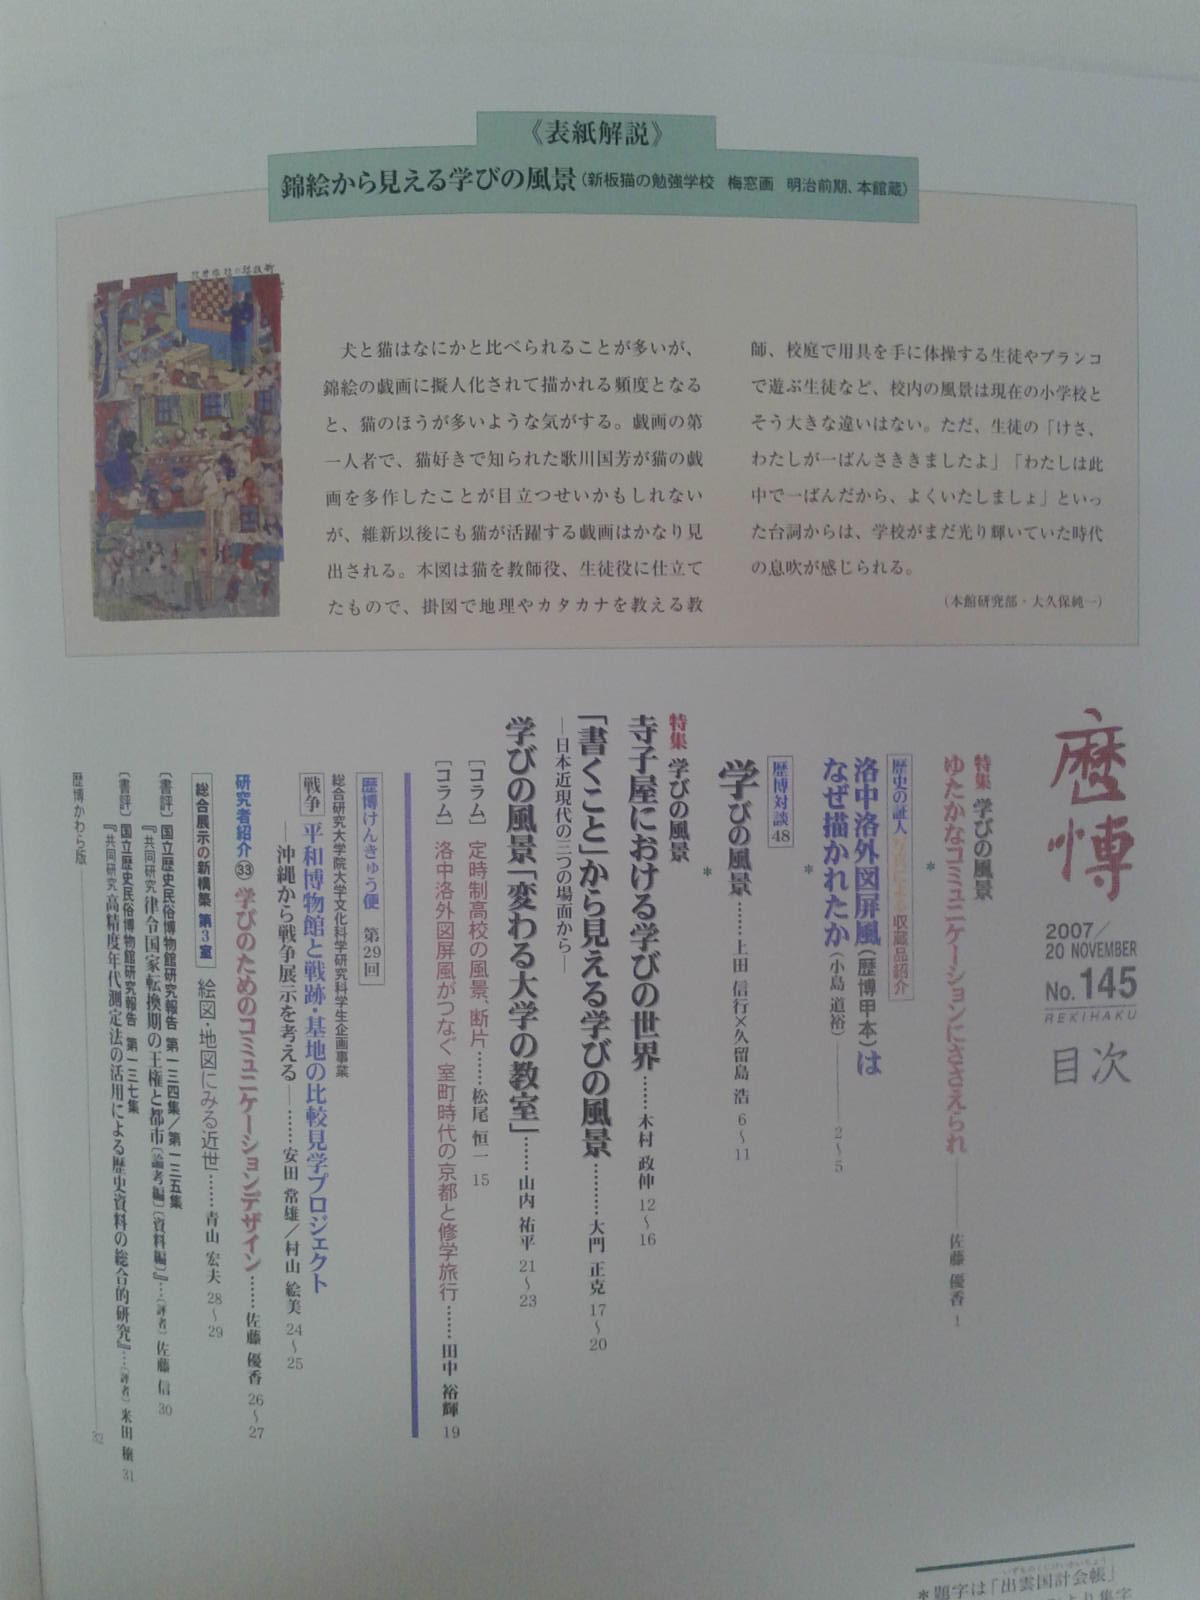 《表紙解説》
錦絵から見える学びの風景(新板猫の勉強学校 梅窓画 明治前期、本館蔵)
犬と猫はなにかと比べられることが多いが、
錦絵の戯画に擬人化されて描かれる頻度となる
と、猫のほうが多いような気がする。戯画の第
一人者で、猫好きで知られた歌川国芳が猫の戯
画を多作したことが目立つせいかもしれない
が、維新以後にも猫が活躍する戯画はかなり見
出される。本図は猫を教師役、生徒役に仕立て
たもので、掛図で地理やカタカナを教える教
師、校庭で用具を手に体操する生徒やブランコ
で遊ぶ生徒など、校内の風景は現在の小学校と
そう大きな違いはない。ただ、生徒の「けさ、
わたしが一ばんさききましたよ」「わたしは此
中で一ばんだから、よくいたしましょ」といっ
た台詞からは、学校がまだ光り輝いていた時代
の息吹が感じられる。
(本館研究部・大久保純一)
歴博
2007/
20 NOVEMBER
No. 145
REKIHAKU
目次
特集 学びの風景
ゆたかなコミュニケーションにささえられ――佐藤 優香 1
*
歴史の証人 写真による収蔵品紹介
洛中洛外図屏風(歴博甲本)は
なぜ描かれたか(小島 道裕)――2〜5
*
歴博対談48
学びの風景……上田 信行×久留島 浩 6〜11
*
特集 学びの風景
寺子屋における学びの世界……木村 政伸 12〜16
「書くこと」から見える学びの風景……大門 正克 17〜20
―日本近現代の三つの場面から―
学びの風景「変わる大学の教室」……山内 祐平 21〜23
〔コラム〕 定時制高校の風景、断片……松尾 恒一 15
〔コラム〕 洛中洛外図屏風がつなぐ 室町時代の京都と修学旅行……田中 裕輝 19
歴博けんきゅう便 第29回
総合研究大学院大学文化科学研究科学生企画事業
戦争 平和博物館と戦跡・基地の比較見学プロジェクト
―沖縄から戦争展示を考える―……安田 常雄/村山 絵美 24〜25
研究者紹介㉝ 学びのためのコミュニケーションデザイン……佐藤 優香 26〜27
総合展示の新構築 第3室 絵図・地図にみる近世……青山 宏夫 28〜29
〔書評〕国立歴史民俗博物館研究報告 第一三四集/第一三五集
『共同研究 律令国家転換期の王権と都市〔論考編〕〔資料編〕』…〔評者〕佐藤 信 30
〔書評〕国立歴史民俗博物館研究報告 第一三七集
『共同研究 高精度年代測定法の活用による歴史資料の総合的研究』…〔評者〕米田 穣 31
歴博かわら版 32
*題字は「出雲国計会帳」
より集字